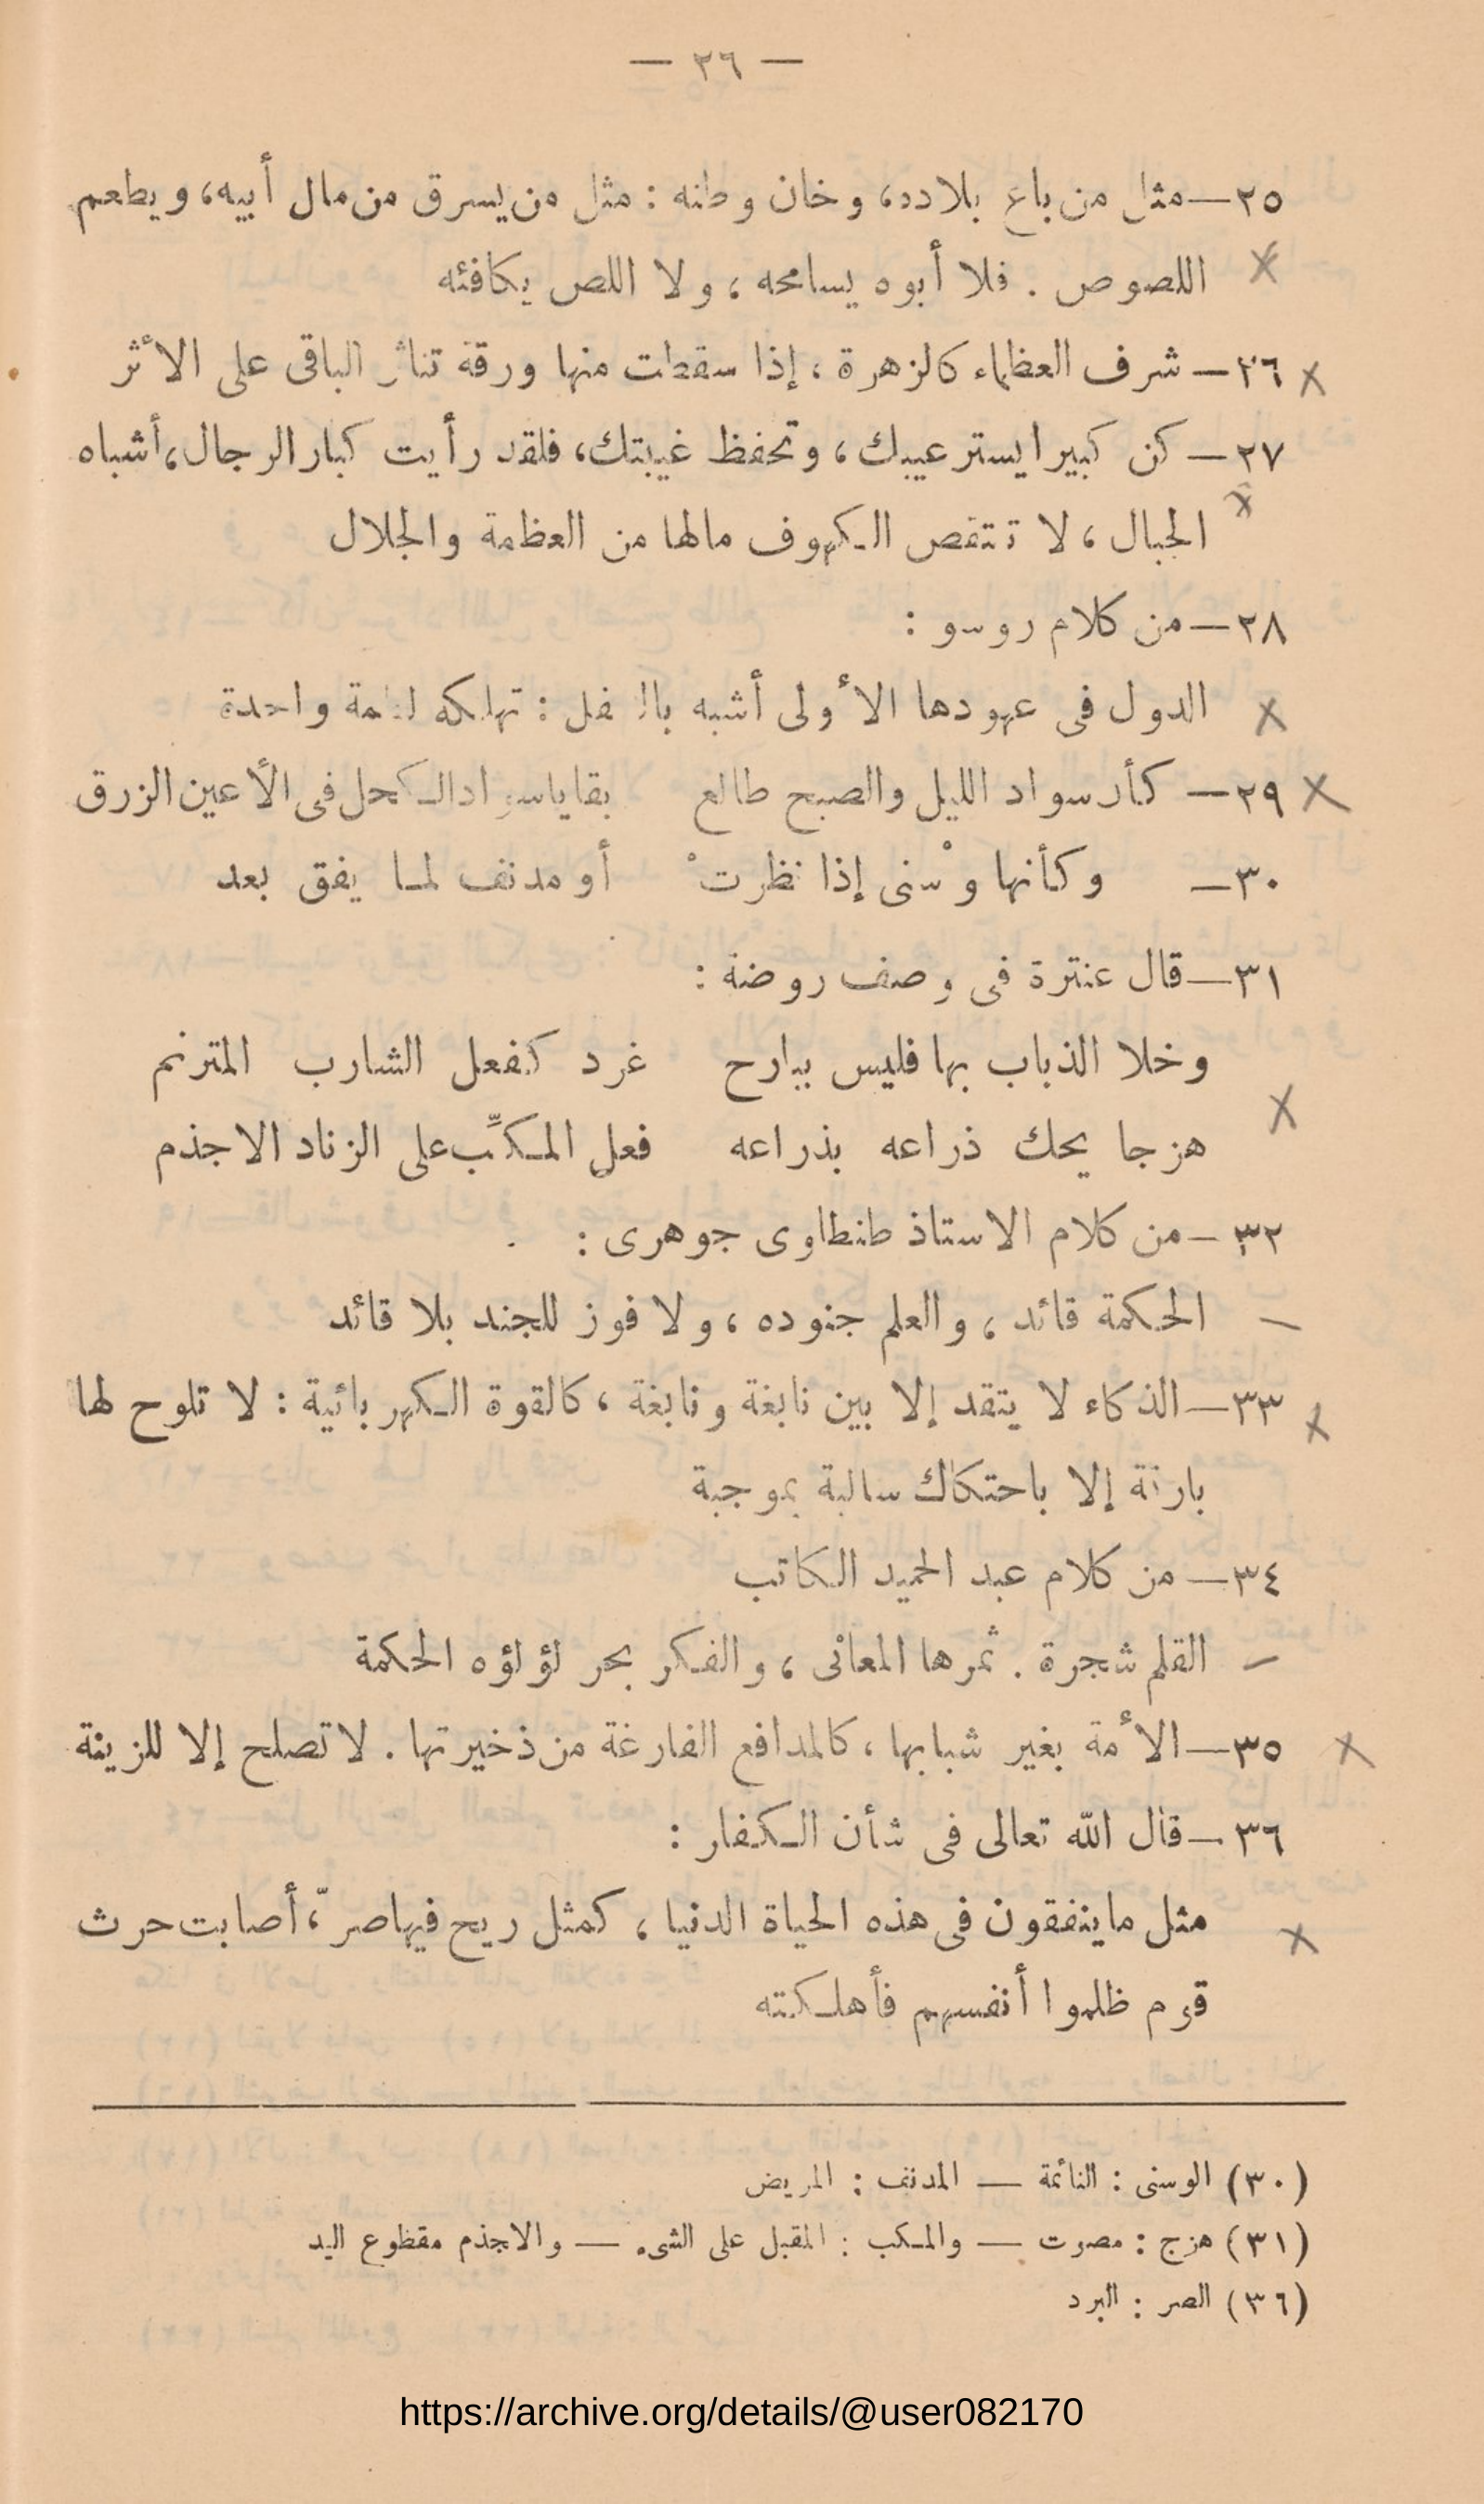 — ٢٦ —
٢٥ — مثل من باع بلاده، وخان وطنه : مثل من يسرق من مال أبيه، ويطعم
اللصوص . فلا أبوه يسامحه ، ولا اللص يكافئه
٢٦ — شرف العظماء كالزهرة ، إذا سقطت منها ورقة تناثر الباقى على الأثر
٢٧ — كن كبيرا يستر عيبك ، وتحفظ غيبتك، فلقد رأيت كبار الرجال، أشباه
الجبال ، لا تنتقص الكهوف مالها من العظمة والجلال
٢٨ — من كلام روسو :
الدول فى عهودها الأولى أشبه بالطفل : تهلكه لقمة واحدة
٢٩ — كأن سواد الليل والصبح طالع بقايا سواد الكحل فى الأعين الزرق
٣٠ — وكأنها وسْنى إذا نظرتْ أو مدنف لما يفق بعد
٣١ — قال عنترة فى وصف روضة :
وخلا الذباب بها فليس ببارح غرد كفعل الشارب المترنم
هزجا يحك ذراعه بذراعه فعل المكبِّ على الزناد الاجذم
٣٢ — من كلام الاستاذ طنطاوى جوهرى :
الحكمة قائد ، والعلم جنوده ، ولا فوز للجند بلا قائد
٣٣ — الذكاء لا يتقد إلا بين نابغة ونابغة ، كالقوة الكهربائية : لا تلوح لها
بارقة إلا باحتكاك سالبة بموجبة
٣٤ — من كلام عبد الحميد الكاتب
القلم شجرة . ثمرها المعانى ، والفكر بحر لؤلؤه الحكمة
٣٥ — الأمة بغير شبابها ، كالمدافع الفارغة من ذخيرتها . لا تصلح إلا للزينة
٣٦ — قال الله تعالى فى شأن الكفار :
مثل ما ينفقون فى هذه الحياة الدنيا ، كمثل ريح فيها صرّ، أصابت حرث
قوم ظلموا أنفسهم فأهلكته
(٣٠) الوسنى : النائمة — المدنف : المريض
(٣١) هزج : مصوت — والمكب : المقبل على الشىء — والاجذم مقطوع اليد
(٣٦) الصر : البرد
https://archive.org/details/@user082170